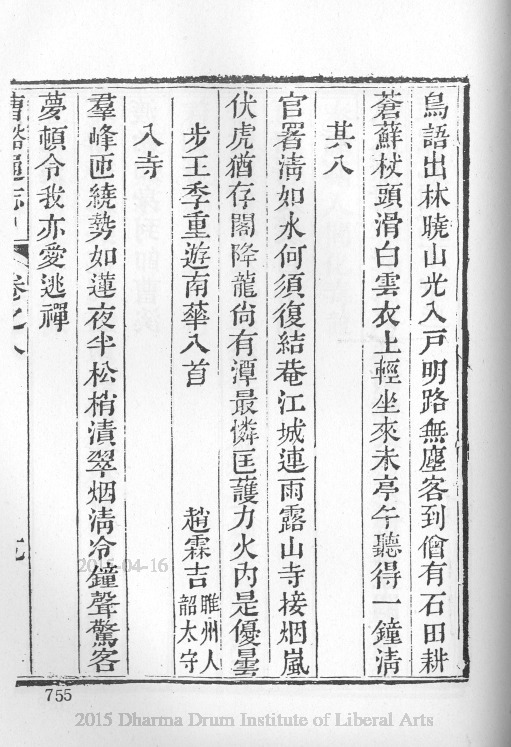 鳥語出林曉山光入戸明路無塵客到僧有石田耕
蒼蘚杖頭滑白雲衣上輕坐來未亭午聽得一鐘淸
其八
官署淸如水何須復結菴江城連雨露山寺接烟嵐
伏虎猶存閣降龍尙有潭最憐匡護力火內是優曇
步王季重遊南華八首
趙霖吉
睢州人
韶太守
入寺
羣峰匝繞勢如蓮夜半松梢漬翠烟淸冷鐘聲驚客
夢頓令我亦愛逃禪
曹谿通志
卷之八
755
2015-04-16
2015 Dharma Drum Institute of Liberal Arts